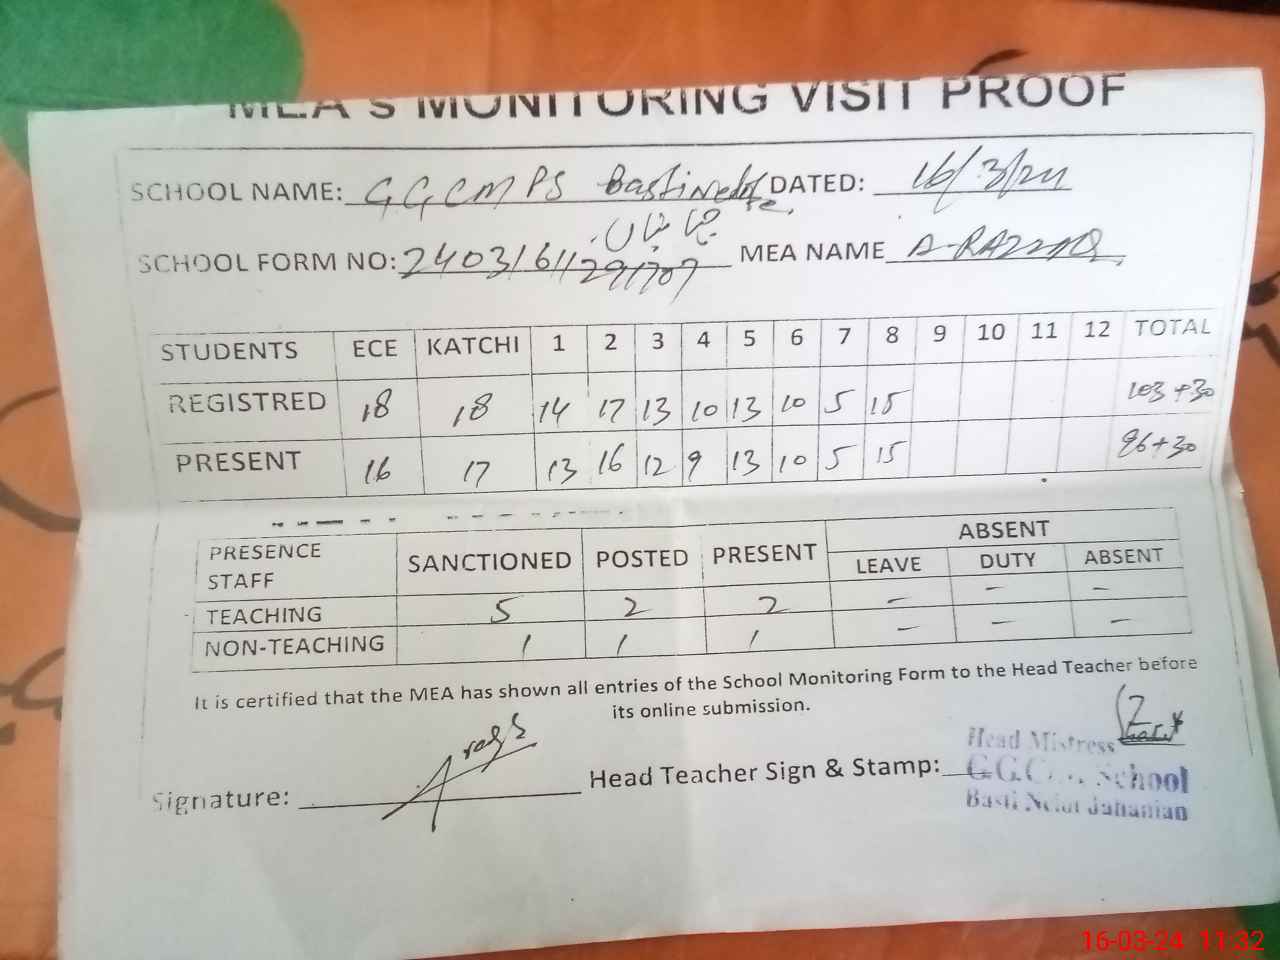 MEA'S MONITORING VISIT PROOF
SCHOOL NAME: G.G.C.M.P.S Basti DATED: 16/3/24
SCHOOL FORM NO: 24031611291707 MEA NAME A-RAZZAQ
STUDENTS ECE KATCHI 1 2 3 4 5 6 7 8 9 10 11 12 TOTAL
REGISTRED 18 18 14 17 13 10 13 10 5 15 103+30
PRESENT 16 17 13 16 12 9 13 10 5 15 96+30
ABSENT
PRESENCE STAFF SANCTIONED POSTED PRESENT LEAVE DUTY ABSENT
TEACHING 5 2 2 – – –
NON-TEACHING 1 1 1 – – –
It is certified that the MEA has shown all entries of the School Monitoring Form to the Head Teacher before
its online submission.
Signature: Head Teacher Sign & Stamp:
Head Mistress
G.G.C. School
Basti Jahanian
16-03-24 11:32